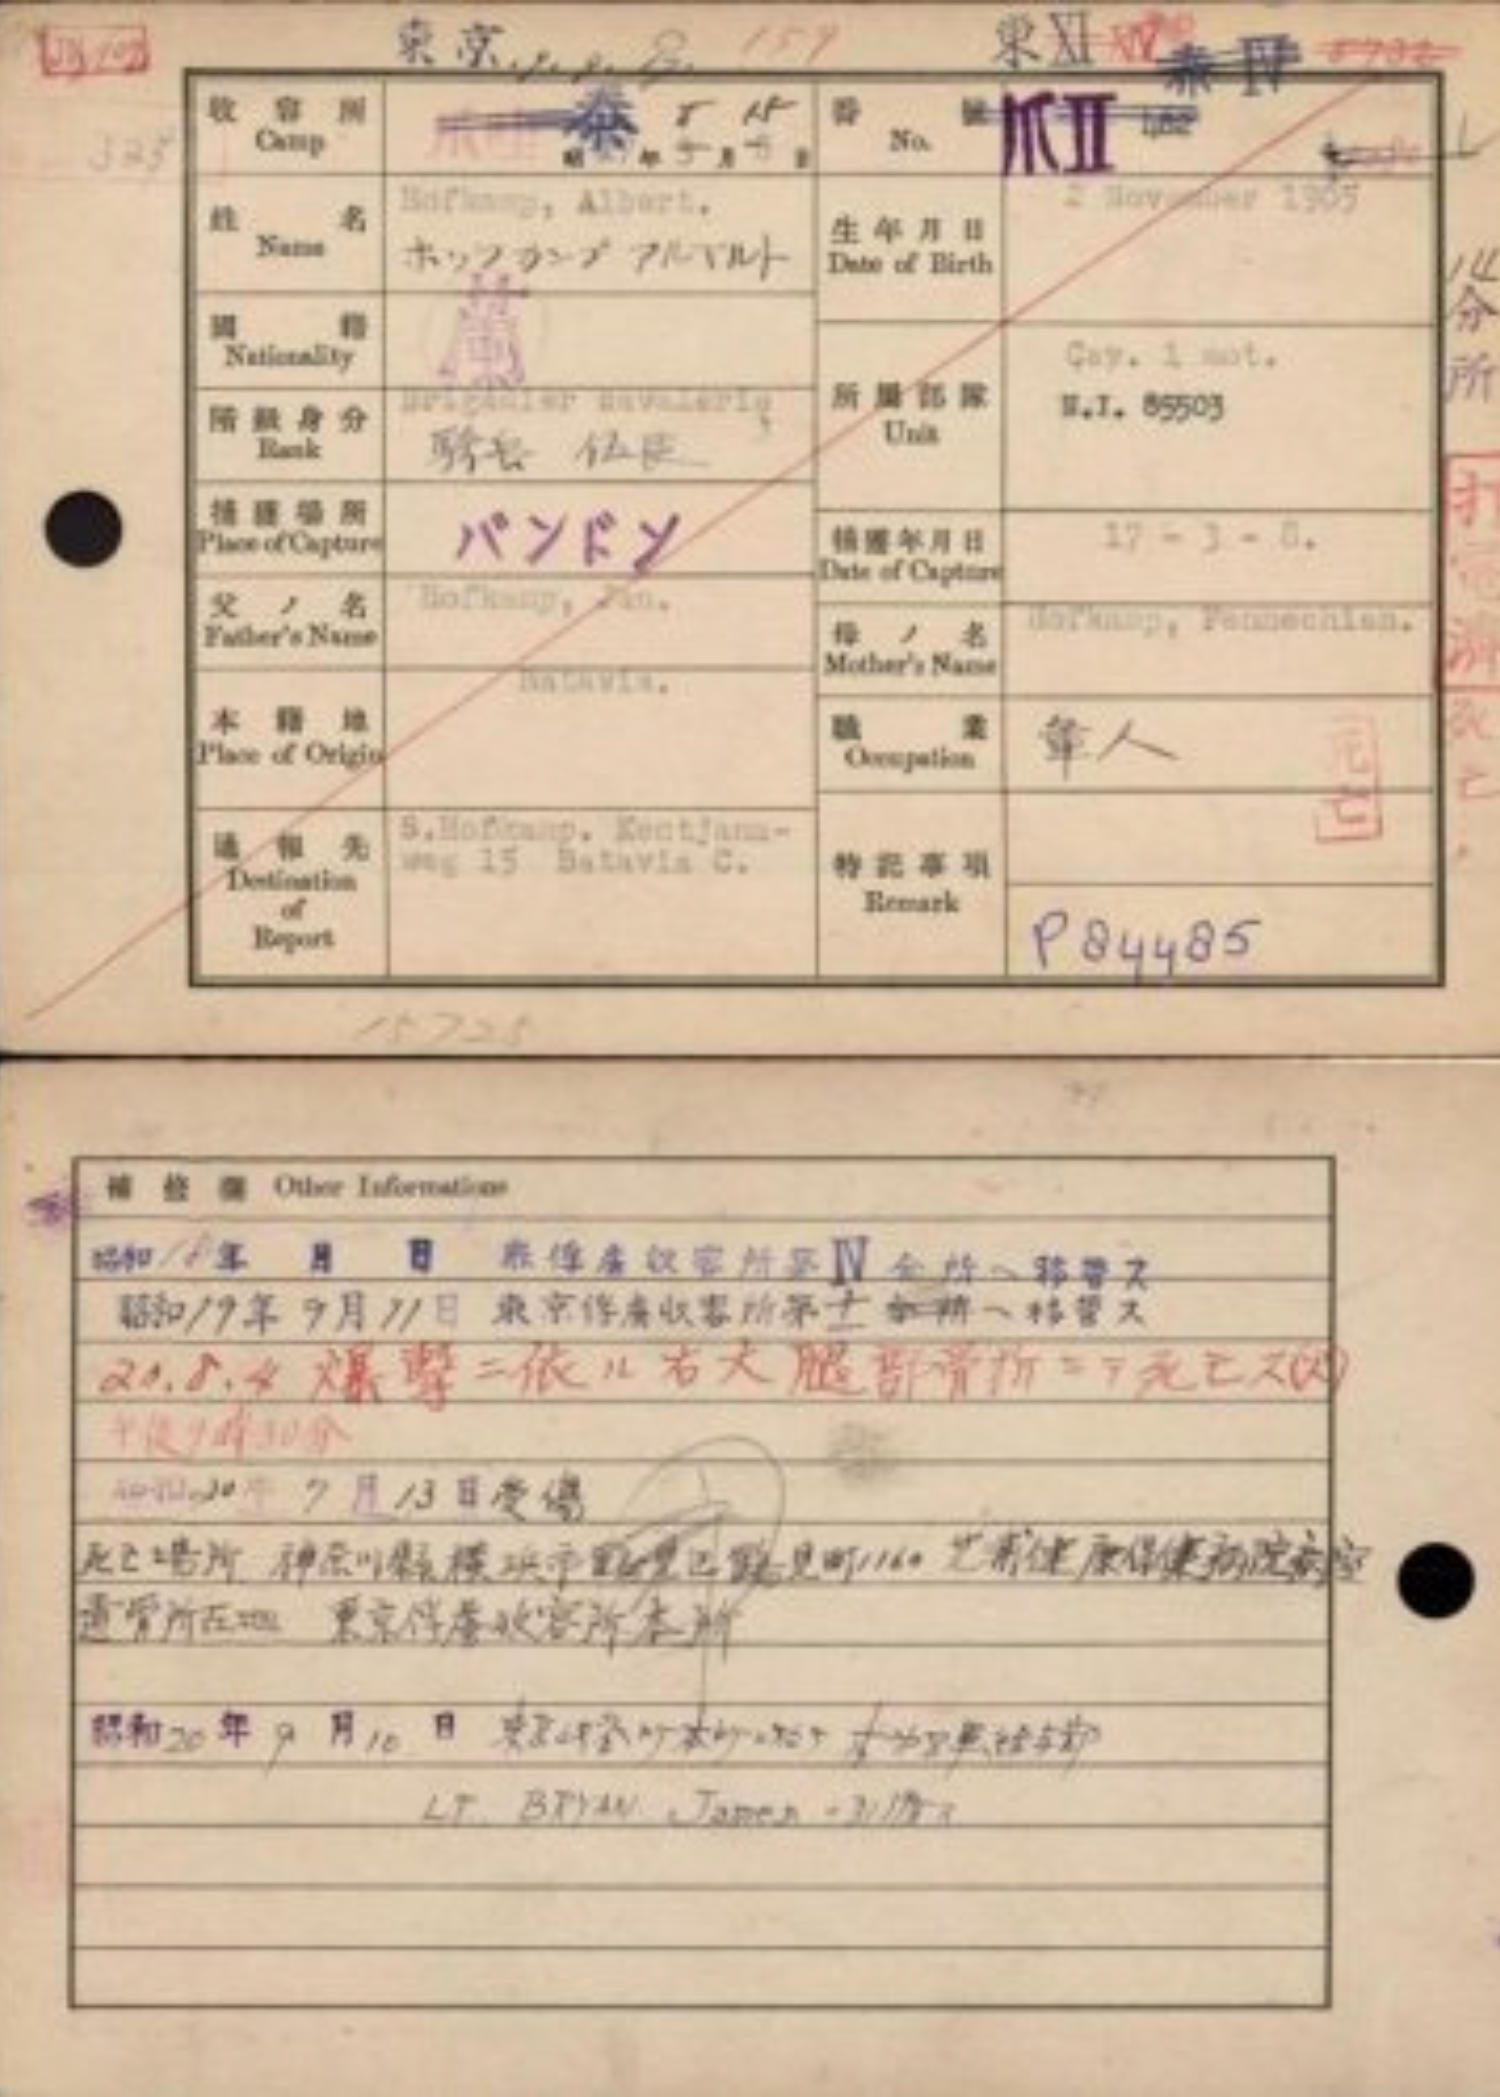 東京 159 東XI 泰IV
325
收容所 Camp 泰 8 15
昭 年 月 日
番號 No. 爪II
姓名 Name Hofkamp, Albert.
ホッフカンプ アルベルト
生年月日 Date of Birth 2 November 1905
國籍 Nationality 蘭
階級身分 Rank Brigadier Cavalerie,
騎兵 伍長
所屬部隊 Unit Cav. 1 mot.
N.I. 85503
14分所
捕獲場所 Place of Capture バンドン
捕獲年月日 Date of Capture 17 - 3 - 8.
打電濟 死亡
父ノ名 Father's Name Hofkamp, Jan.
母ノ名 Mother's Name Hofkamp, Fennechien.
本籍地 Place of Origin Batavia.
職業 Occupation 軍人
死亡
通報先 Destination of Report S.Hofkamp. Kentjana-
weg 15 Batavia C.
特記事項 Remark
P84485
15725
補修欄 Other Informations
昭和18年 月 日 泰俘虜収容所第IV分所へ移管ス
昭和19年9月11日 東京俘虜収容所第十一分所へ移管ス
20.8.4 爆撃ニ依ル右大腿部骨折ニテ死亡ス
午後9時30分
昭和20年7月13日受傷
死亡場所 神奈川縣横浜市鶴見区鶴見町1160 芝浦健康保健病院病室
遺骨所在地 東京俘虜収容所本所
昭和20年9月10日
LT. BRYAN James ニ引渡ス